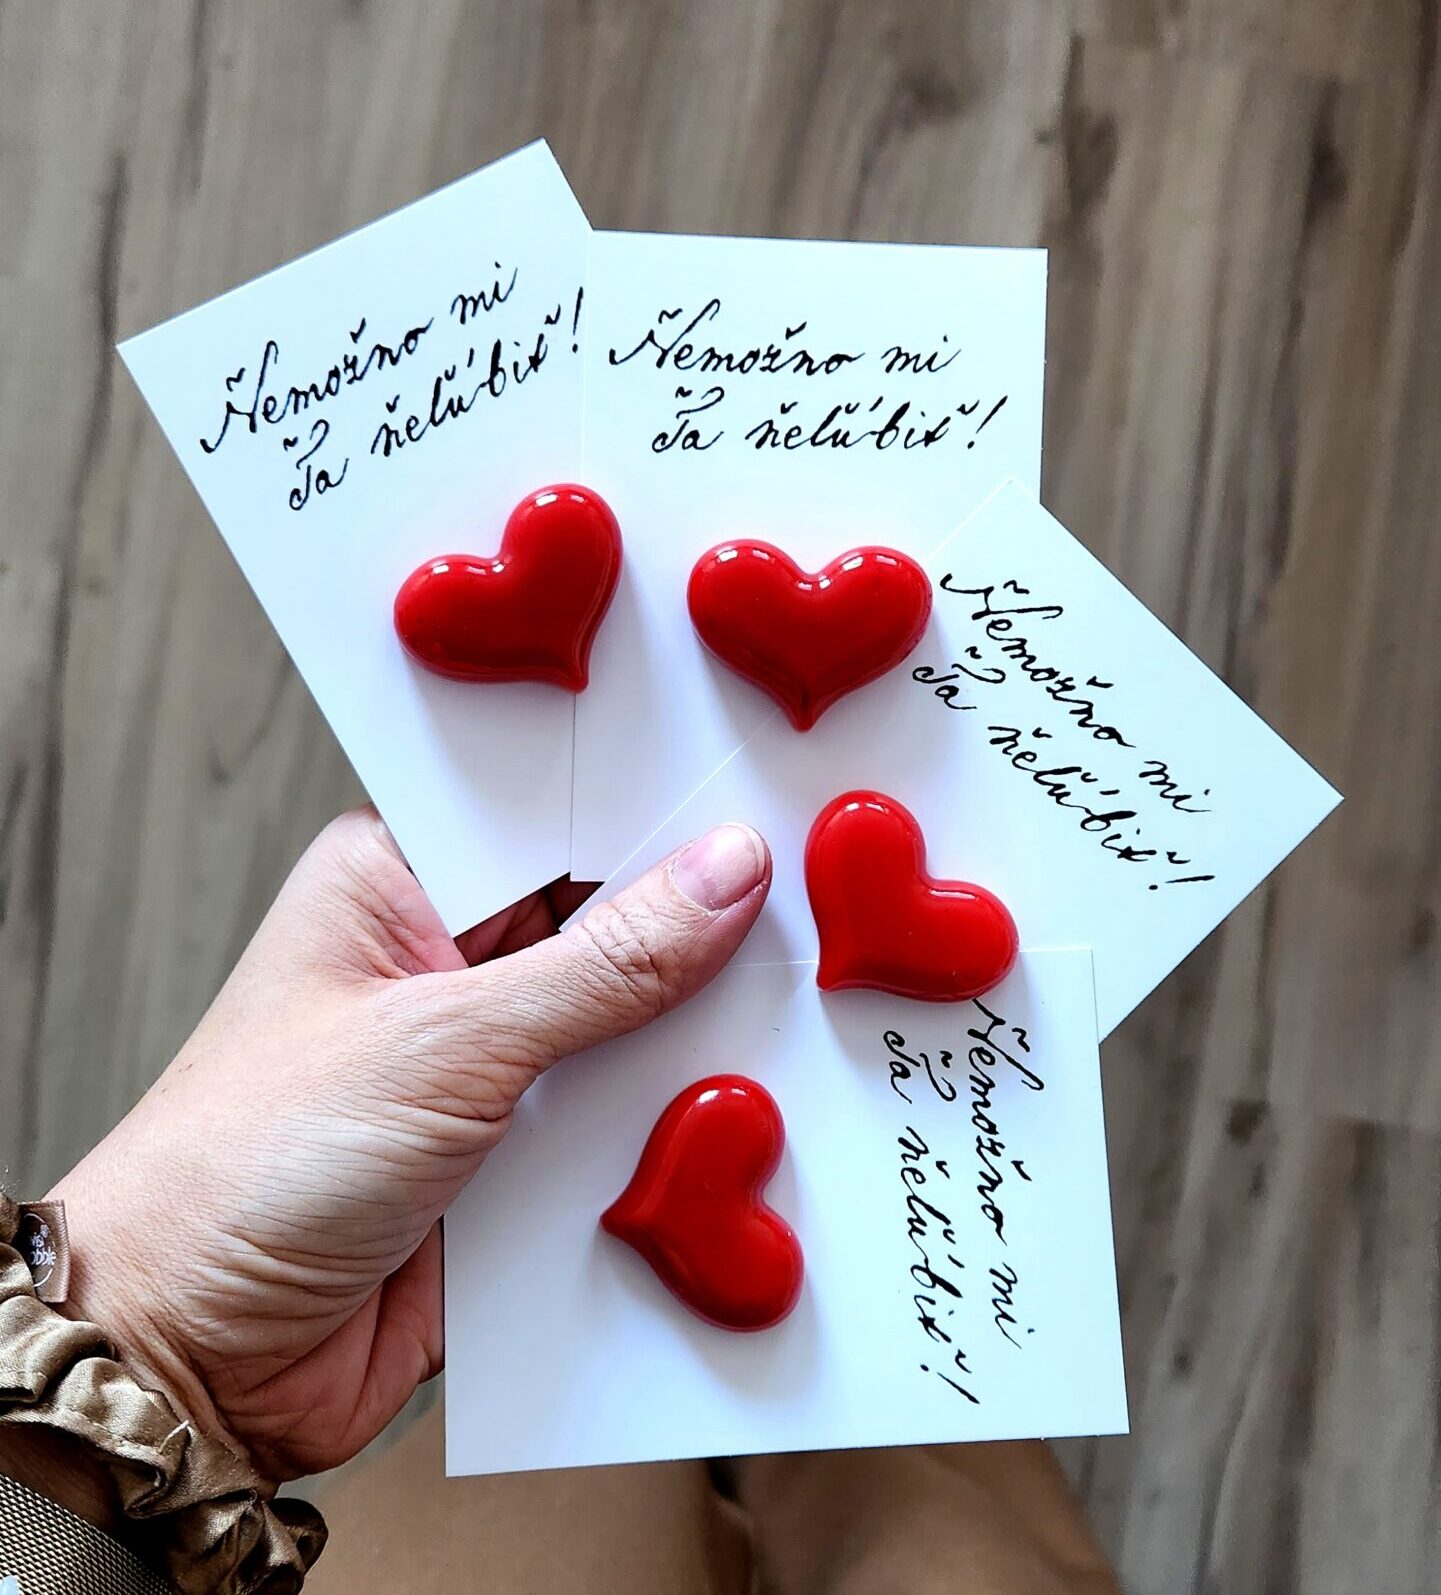 Ňemožno mi
Ťa ňeľúbiť!
Ňemožno mi
Ťa ňeľúbiť!
Ňemožno mi
Ťa ňeľúbiť!
Ňemožno mi
Ťa ňeľúbiť!